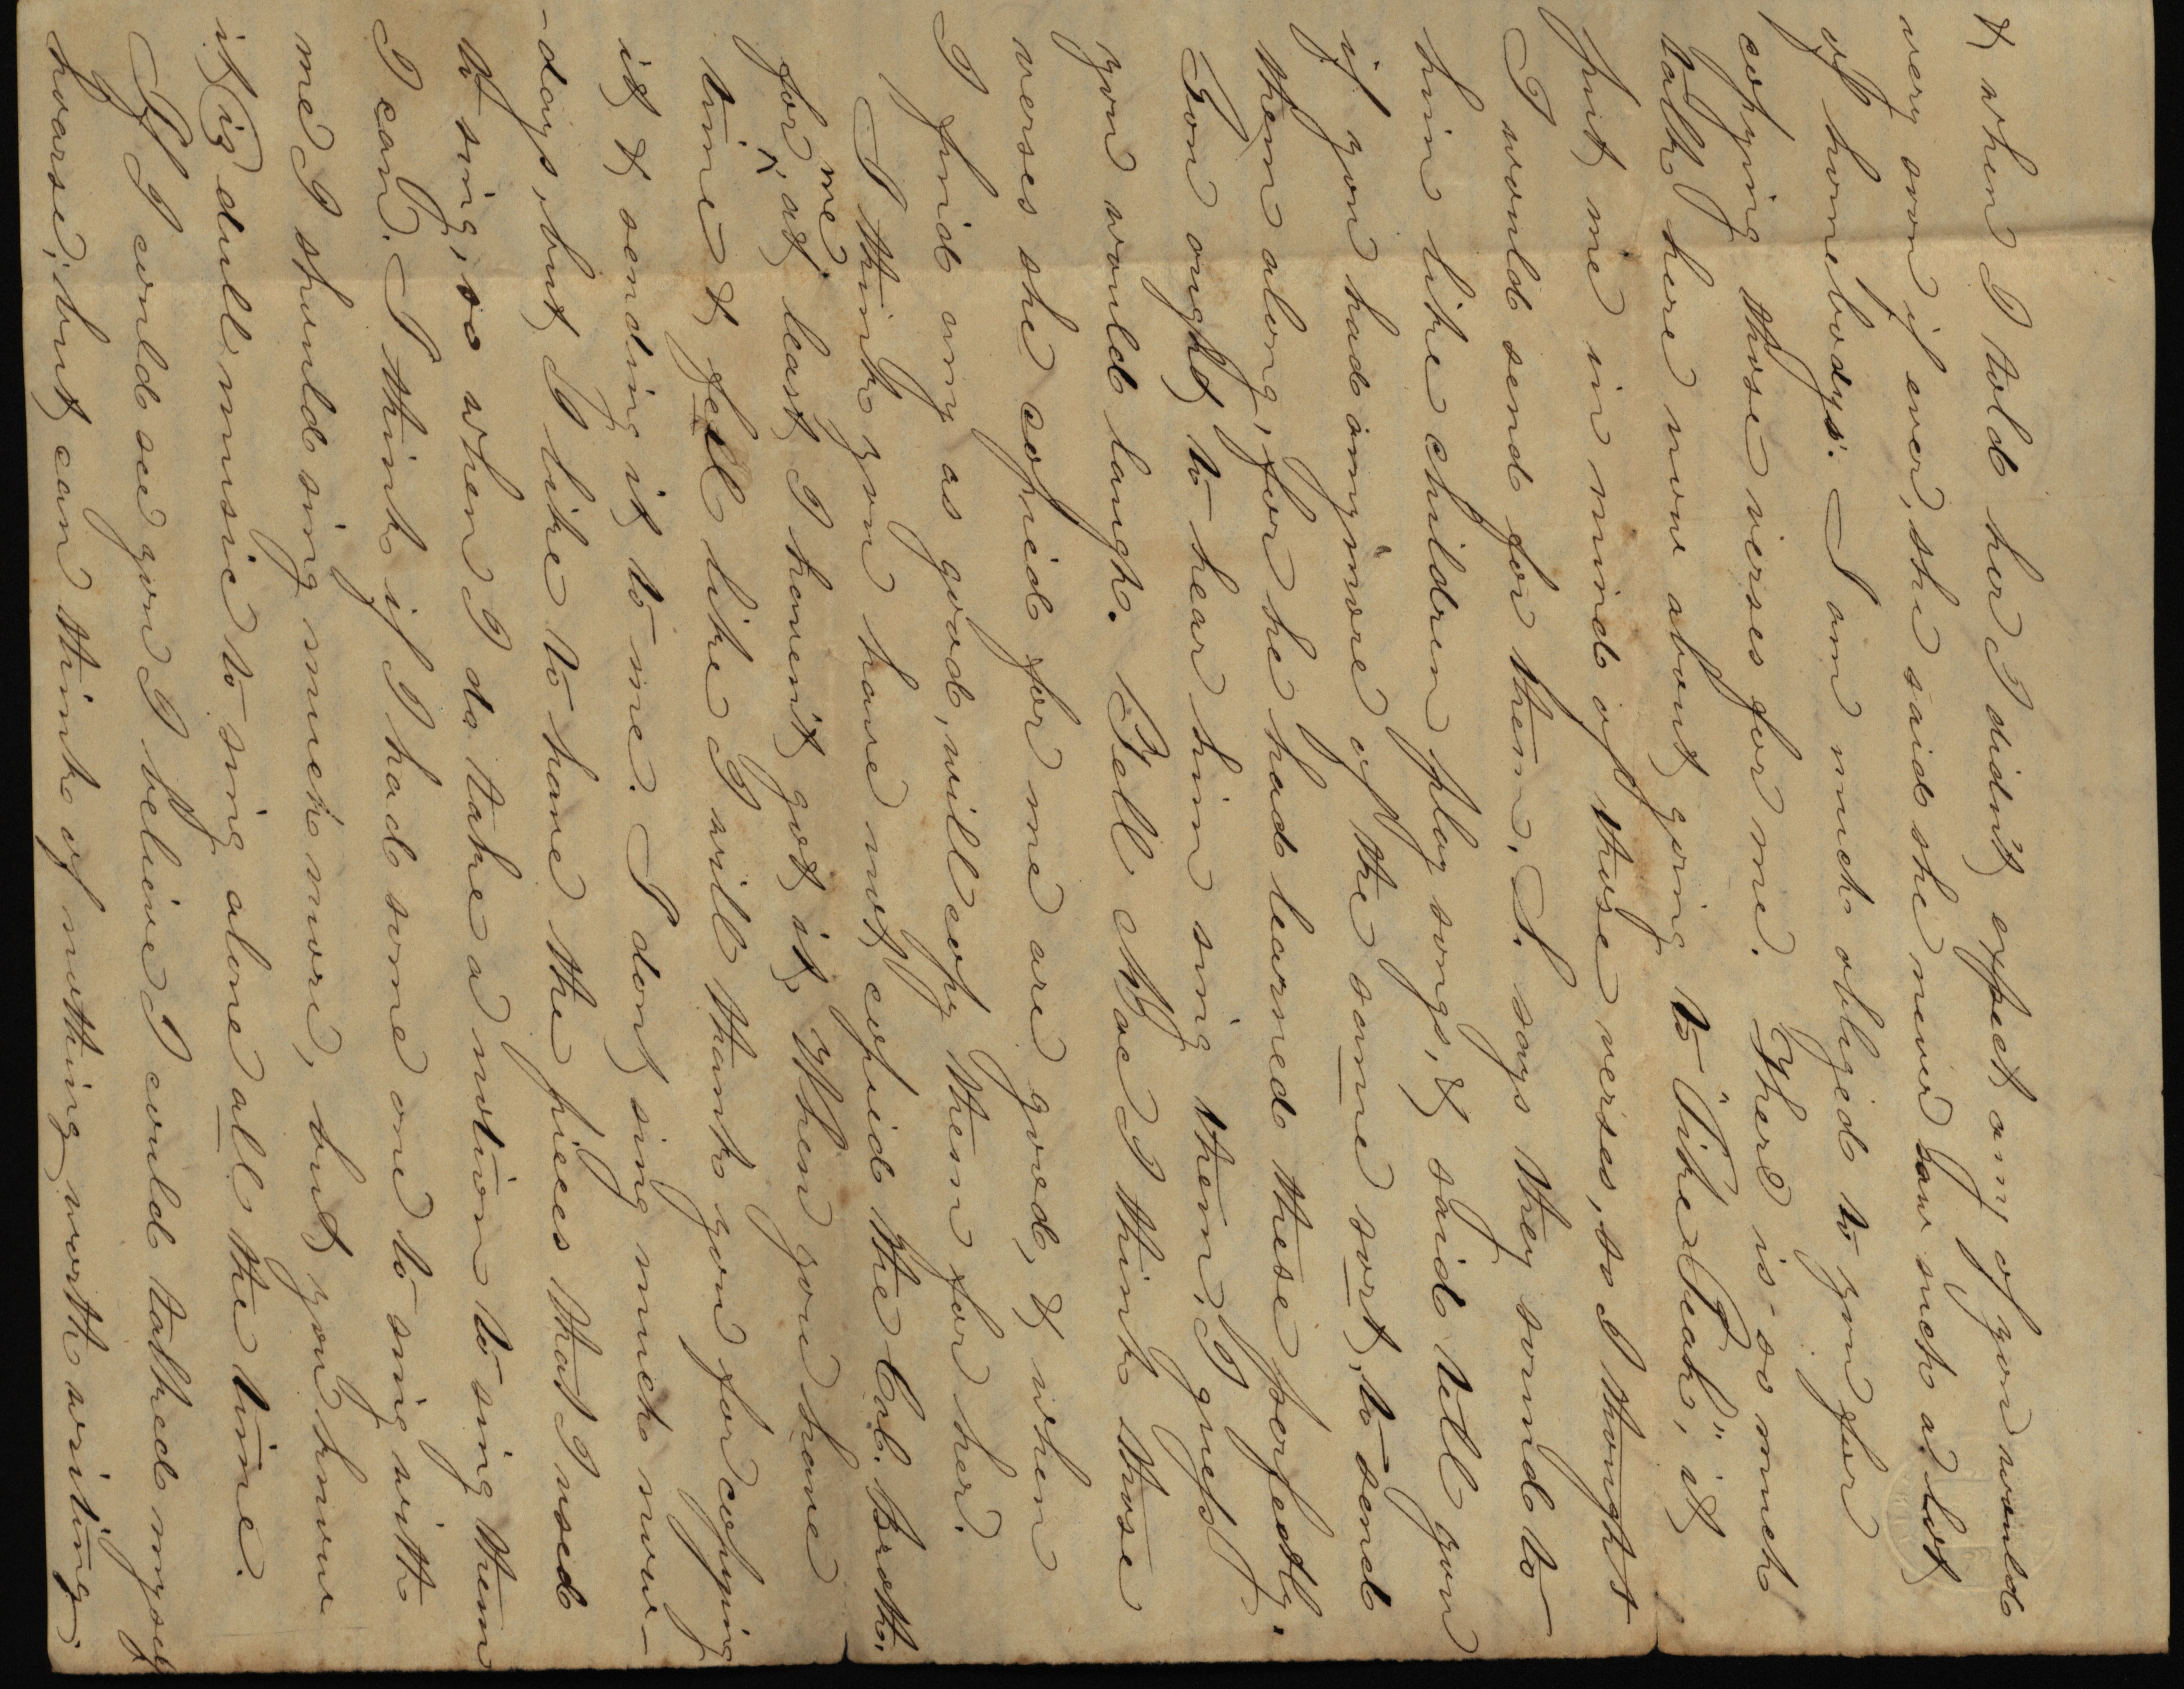 & when I told her I didn't expect any of you would
very soon if ever, she said she never saw such a lot
of homebodys. I am much obliged to you for
copying those verses for me. There is so much
talk here now about going to "Pike's Peak", it
put me in mind of those verses, so I thought
I would send for them. S. says they sound to
him like children play songs, & said tell you
if you had anymore of the same sort, to send
them along, for he had learned these perfectly.
You ought to hear him sing them, I guess
you would laugh. Tell Mac I think those
verses she copied for me are good, & when
I find any as good, will copy them for her.
I think you have not copied the Cal. Broth.
for me at least I havent got it, When you have
time & feel like I will thank you for copying
it & sending it to me. I dont sing much now-
-days, but I like to have the pieces that I used
to sing, so when I do take a notion to sing them
I can. I think if I had some one to sing with
me I should sing much more, but you know
it is dull music to sing alone all the time.
If I could see you I believe I could talked myself
hoarse, but can think of nothing worth writing.